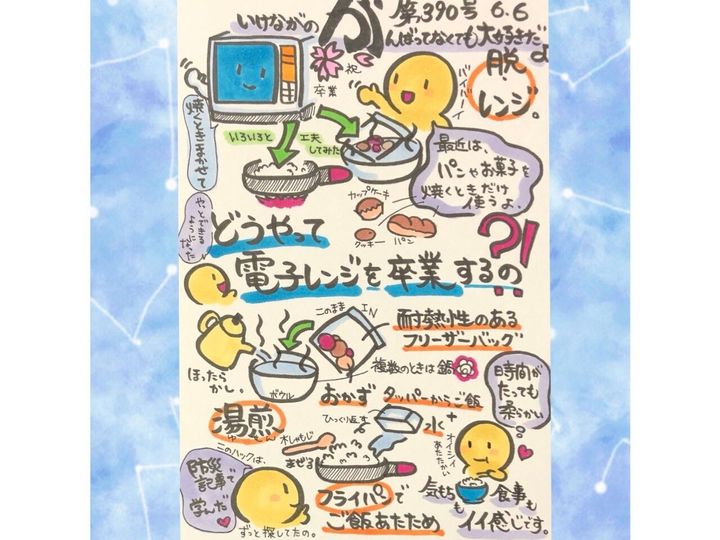 いけながの
が
第390号 6.6
んばってなくても大好きだよ
祝
卒業
バイバーイ
脱
レンジ。
焼くときまかせて
いろいろと
工夫
してみた
最近は、
パンやお菓子を
焼くときだけ
使うよ。
カップケーキ
クッキー
パン
やっとできる
ように
なった
どうやって
電子レンジを卒業するの
?!
このまま
IN
耐熱性のある
フリーザーバッグ
複数のときは鍋
ほったら
かし。
ボウル
おかず
タッパーからご飯
時間が
たっても
柔らかい
湯煎
ゆせん
ひっくり返す
+
水
木しゃもじ
まぜる
オイシイ
あたたかい
このハックは、
防災
記事で
学んだ
ずっと探してたの。
フライパンで
ご飯あたため
気持ちも
食事も
イイ感じです。